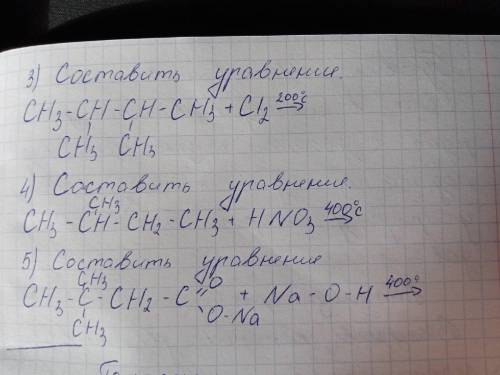 3) Составить уравнение.
CH3-CH-CH-CH3+Cl2 200°C→
CH3 CH3
4) Составить уравнение.
CH3
CH3-CH-CH2-CH3+HNO3 400°C→
5) Составить уравнение
CH3
CH3-C-CH2-C=O + Na-O-H 400°→
O-Na
CH3